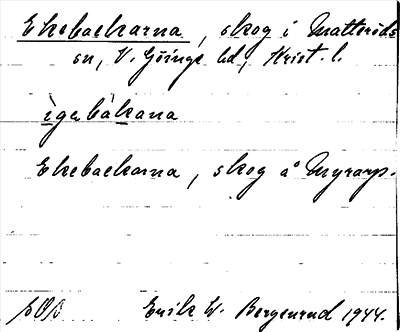 Ekebackarna, skog i Matteröds
sn, V. Göinge hd, Krist. l.
ìgəbàkana
Ekebackarna, skog å Myrarp.
Erik W. Bergenrud 1944.